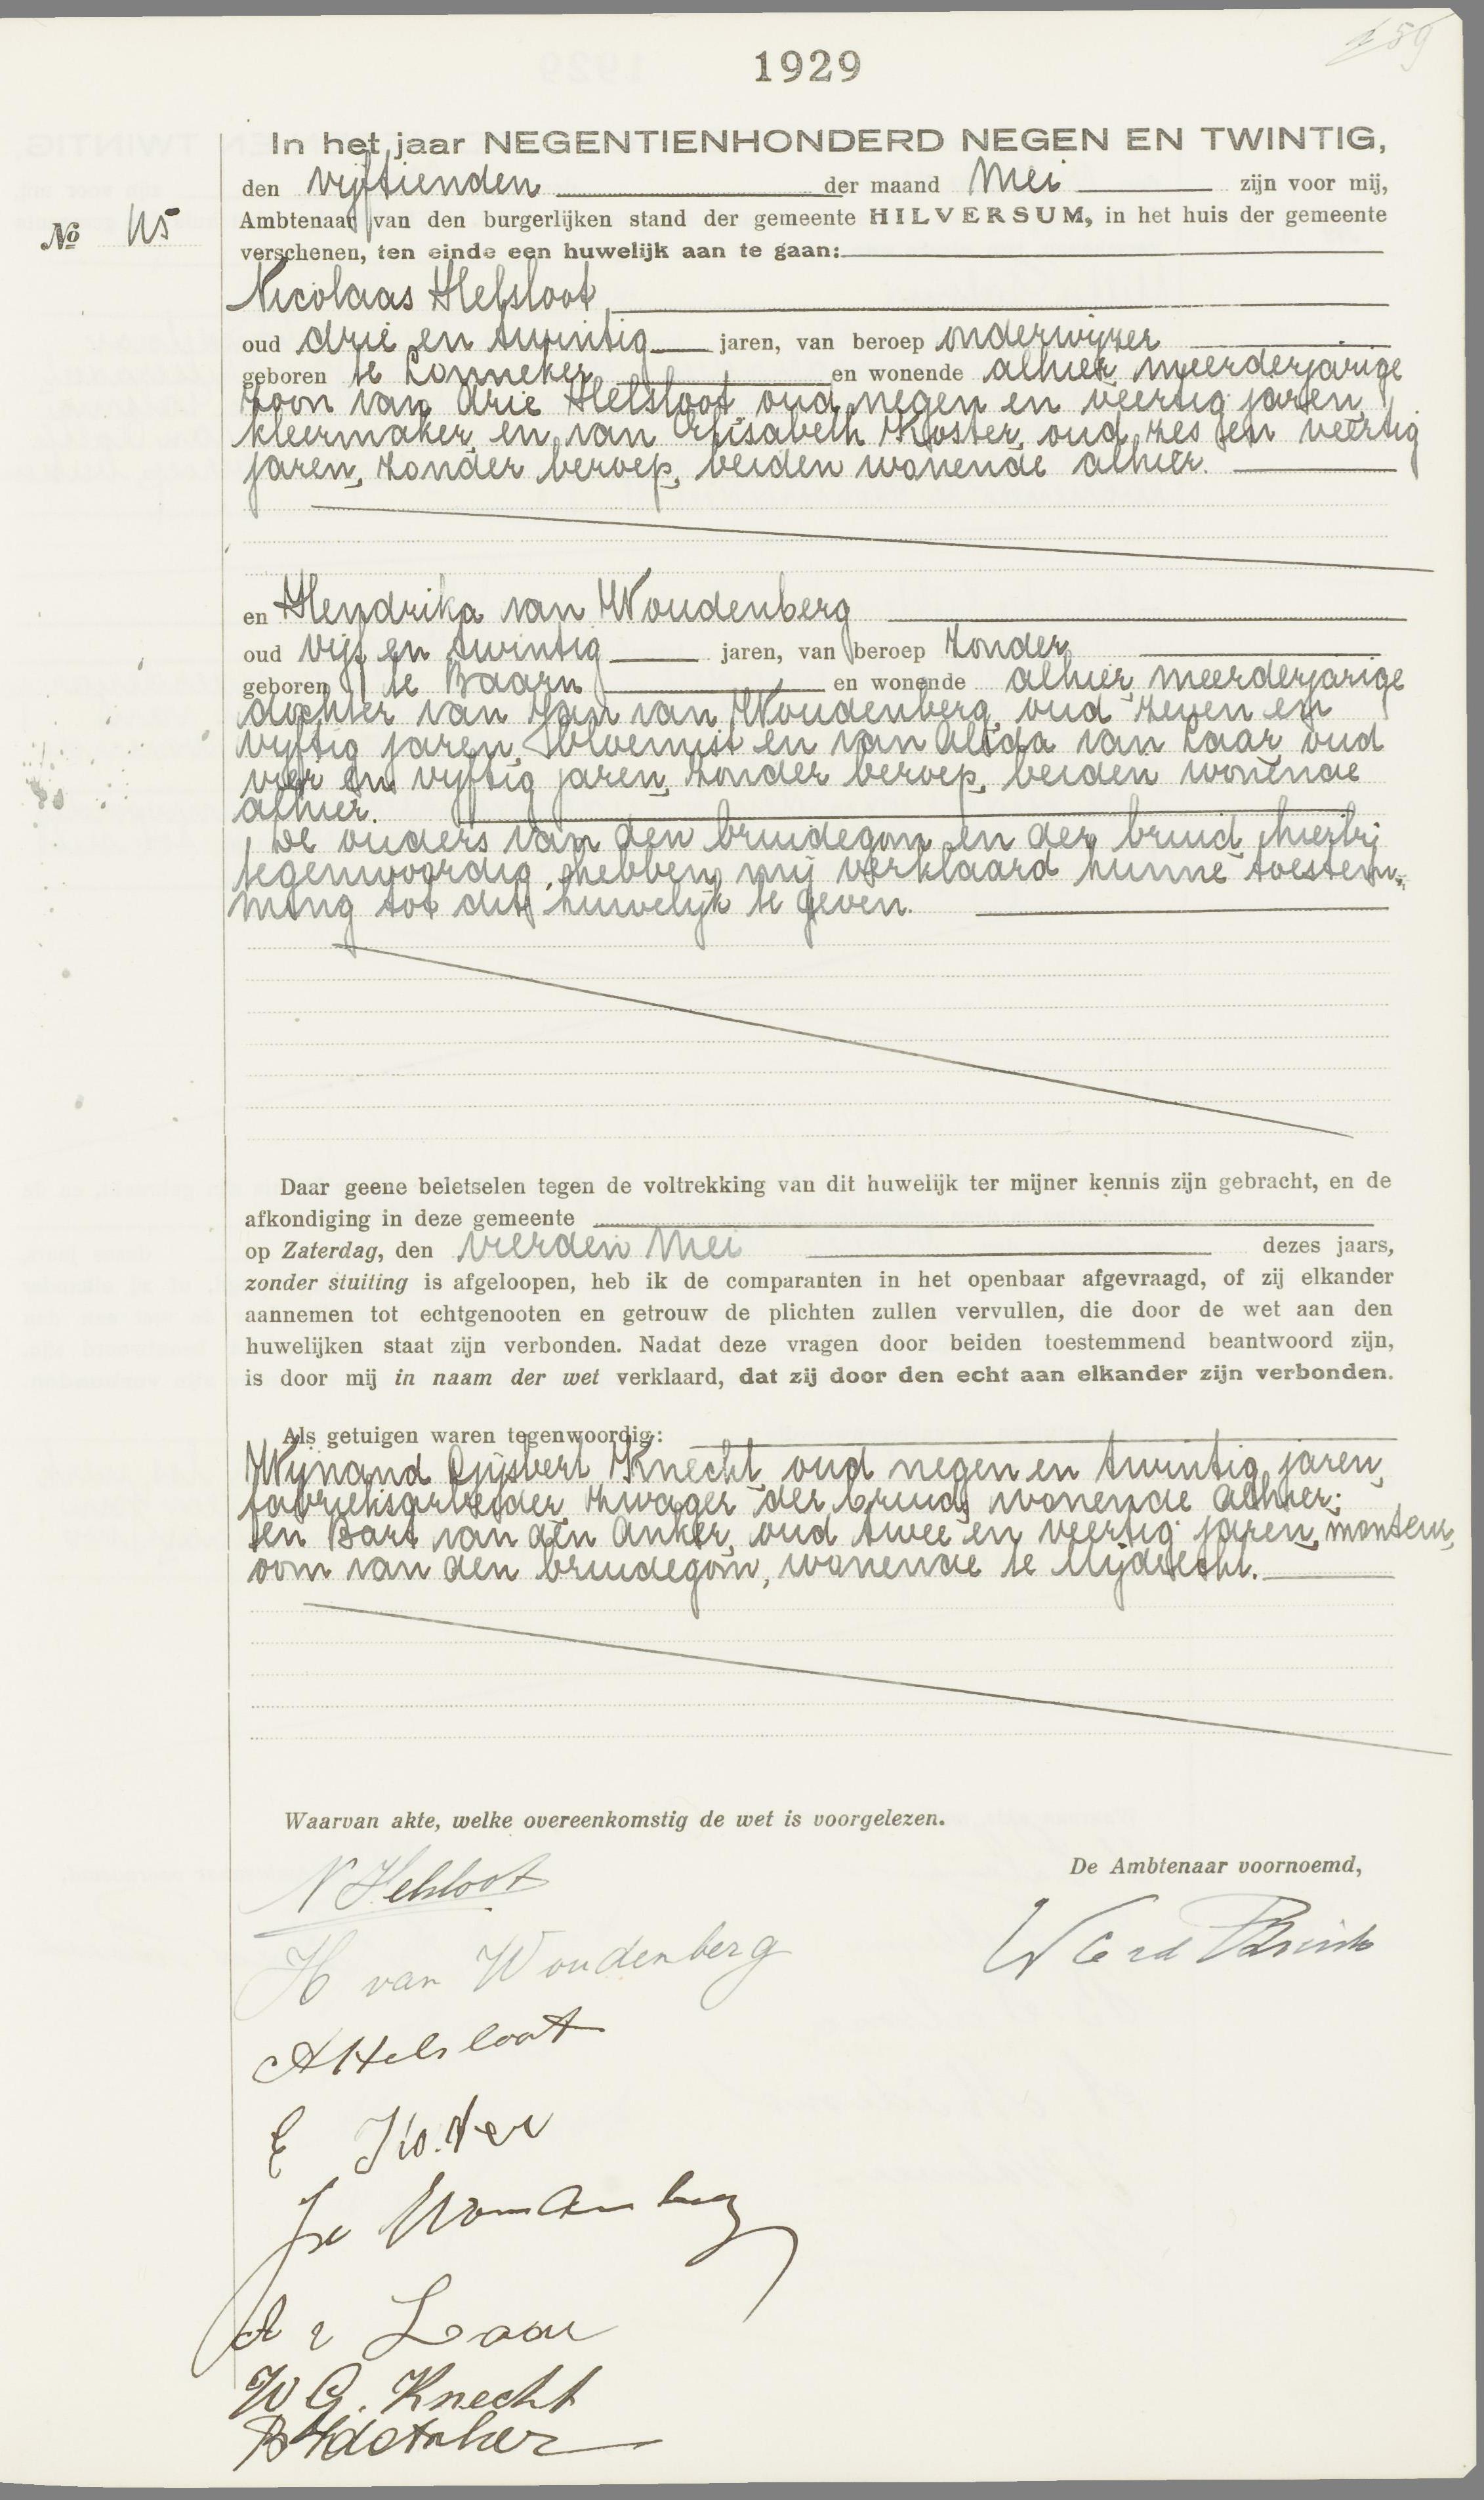 159
1929
In het jaar NEGENTIENHONDERD NEGEN EN TWINTIG,
den vijftienden der maand Mei zijn voor mij,
Ambtenaar van den burgerlijken stand der gemeente HILVERSUM, in het huis der gemeente
No 115
verschenen, ten einde een huwelijk aan te gaan:
Nicolaas Helsloot,
oud drie en twintig jaren, van beroep onderwijzer
geboren te Lonneker en wonende alhier, meerderjarige
zoon van Arie Helsloot, oud negen en veertig jaren,
kleermaker, en van Elisabeth Koster, oud zes en veertig
jaren, zonder beroep, beiden wonende alhier.
en Hendrika van Woudenberg
oud vijf en twintig jaren, van beroep zonder,
geboren te Baarn en wonende alhier, meerderjarige
dochter van Jan van Woudenberg, oud zeven en
vijftig jaren, bloemist en van Alida van Laar, oud
vier en vijftig jaren, zonder beroep, beiden wonende
alhier.
De ouders van den bruidegom en der bruid, hierbij
tegenwoordig, hebben mij verklaard hunne toestem-
ming tot dit huwelijk te geven.
Daar geene beletselen tegen de voltrekking van dit huwelijk ter mijner kennis zijn gebracht, en de
afkondiging in deze gemeente
op Zaterdag, den vierden Mei dezes jaars,
zonder stuiting is afgeloopen, heb ik de comparanten in het openbaar afgevraagd, of zij elkander
aannemen tot echtgenooten en getrouw de plichten zullen vervullen, die door de wet aan den
huwelijken staat zijn verbonden. Nadat deze vragen door beiden toestemmend beantwoord zijn,
is door mij in naam der wet verklaard, dat zij door den echt aan elkander zijn verbonden.
Als getuigen waren tegenwoordig:
Wijnand Gijsbert Knecht, oud negen en twintig jaren,
fabrieksarbeider, zwager der bruid, wonende alhier;
en Bart van den Anker, oud twee en veertig jaren, monteur,
oom van den bruidegom, wonende te Mijdrecht.
Waarvan akte, welke overeenkomstig de wet is voorgelezen.
De Ambtenaar voornoemd,
N Helsloot
H van Woudenberg
A Helsloot
E Koster
J v Woudenberg
A v Laar
W G. Knecht
B vd Anker